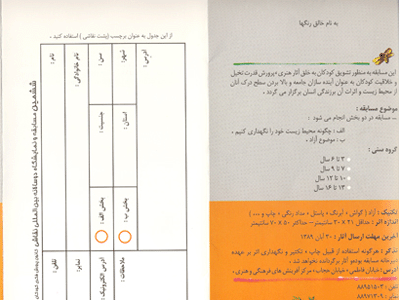 به نام خالق رنگها
این مسابقه به منظور تشویق کودکان به خلق آثار هنری ، پرورش قدرت تخیل
و خلاقیت کودکان به عنوان آینده سازان جامعه و بالا بردن سطح درک آنان
از محیط زیست و اثرات آن بر زندگی انسان برگزار می گردد .
موضوع مسابقه :
مسابقه در دو بخش انجام می شود :
الف : چگونه محیط زیست خود را نگهداری کنیم .
ب : موضوع آزاد .
گروه سنی :
۴ تا ۶ سال
۷ تا ۹ سال
۱۰ تا ۱۲ سال
۱۳ تا ۱۶ سال
تکنیک : آزاد ( گواش ، آبرنگ ، پاستل ، مداد رنگی ، چاپ و ... )
اندازه اثر : حداقل ۳۰ × ۲۱ سانتیمتر – حداکثر ۷۰ × ۵۰ سانتیمتر
آخرین مهلت ارسال آثار : ۳۰ آبان ۱۳۸۹
تذکر : هرگونه اقدامی از قبیل چاپ ، تکثیر و نگهداری اثر بر عهده
دبیرخانه مسابقه بوده و آثار برگردانده نخواهد شد .
آدرس : خیابان فاطمی ، خیابان حجاب ، مرکز آفرینش های فرهنگی و هنری .
تلفن : ۸۸۹۵۱۵۰۳
نمابر : ۸۸۹۷۱۳۰۹
از این جدول به عنوان برچسب ( پشت نقاشی ) استفاده کنید .
ششمین مسابقه و نمایشگاه دوسالانه بین المللی نقاشی
نام :
نام خانوادگی :
سن :
جنسیت :
بخش الف :
شهر :
استان :
بخش ب :
آدرس :
ملاحظات :
تلفن :
نمابر :
آدرس الکترونیک :